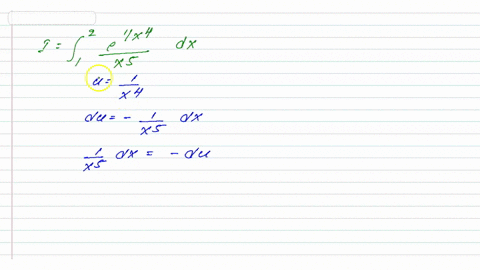 I = ∫₁² e^{1/x4} / x5 dx
u = 1/x4
du = - 1/x5 dx
1/x5 dx = - du